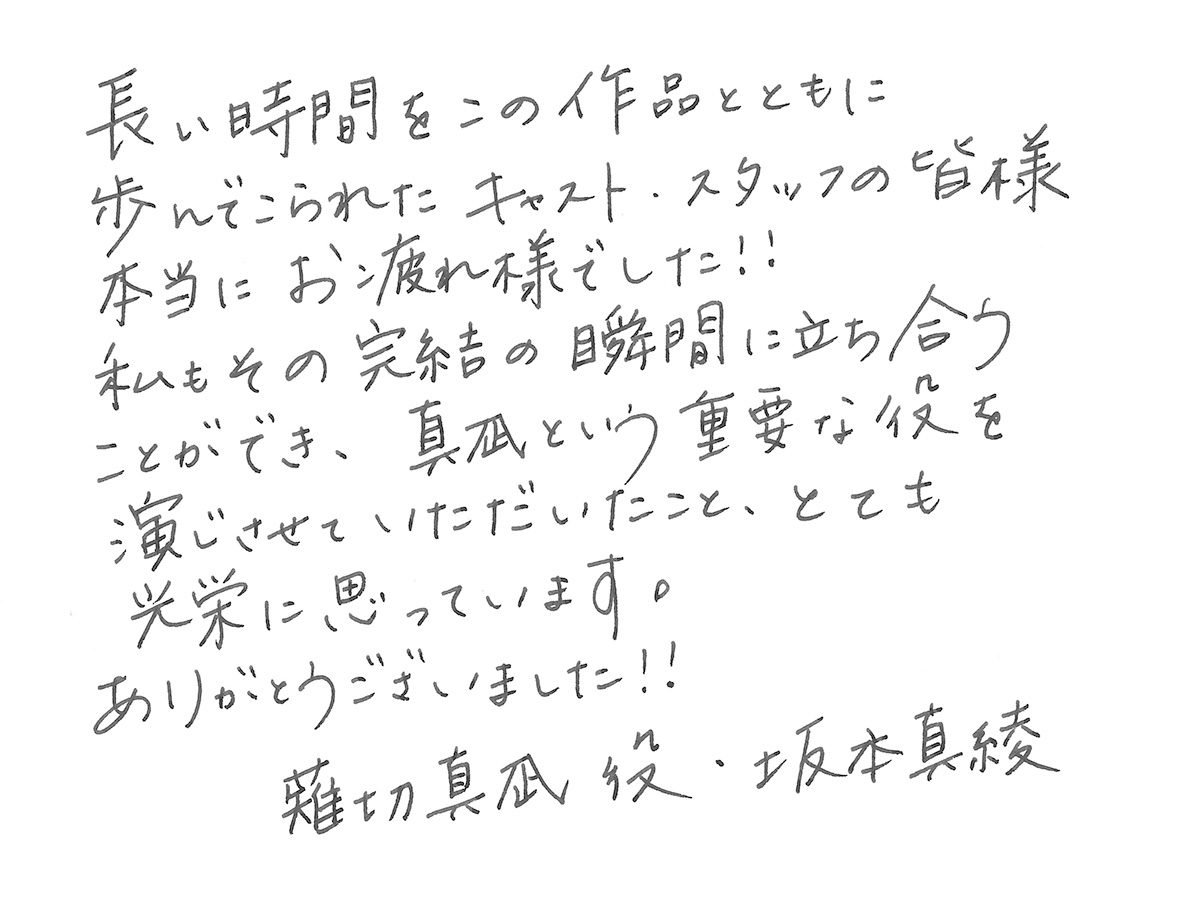 長い時間をこの作品とともに
歩んでこられたキャスト・スタッフの皆様
本当にお疲れ様でした!!
私もその完結の瞬間に立ち合う
ことができ、真凪という重要な役を
演じさせていただいたこと、とても
光栄に思っています。
ありがとうございました!!
薙切真凪 役・坂本真綾